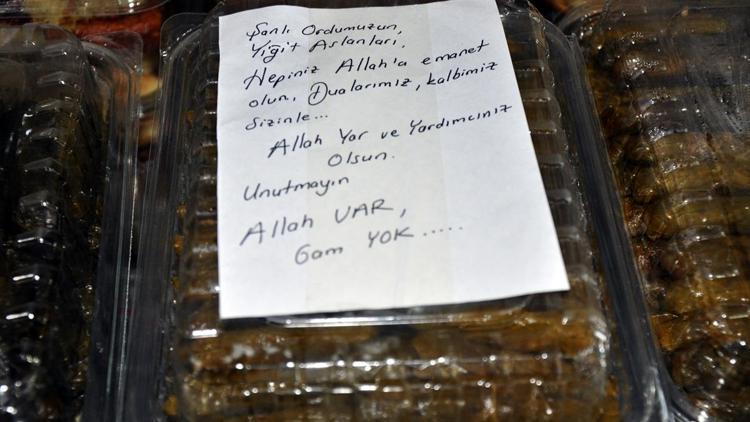 Şanlı Ordumuzun,
Yiğit Aslanları,
Hepiniz Allah'a emanet
olun, Dualarımız, kalbimiz
sizinle...
Allah Yar ve Yardımcınız
Olsun.
Unutmayın
Allah VAR,
Gam YOK.....